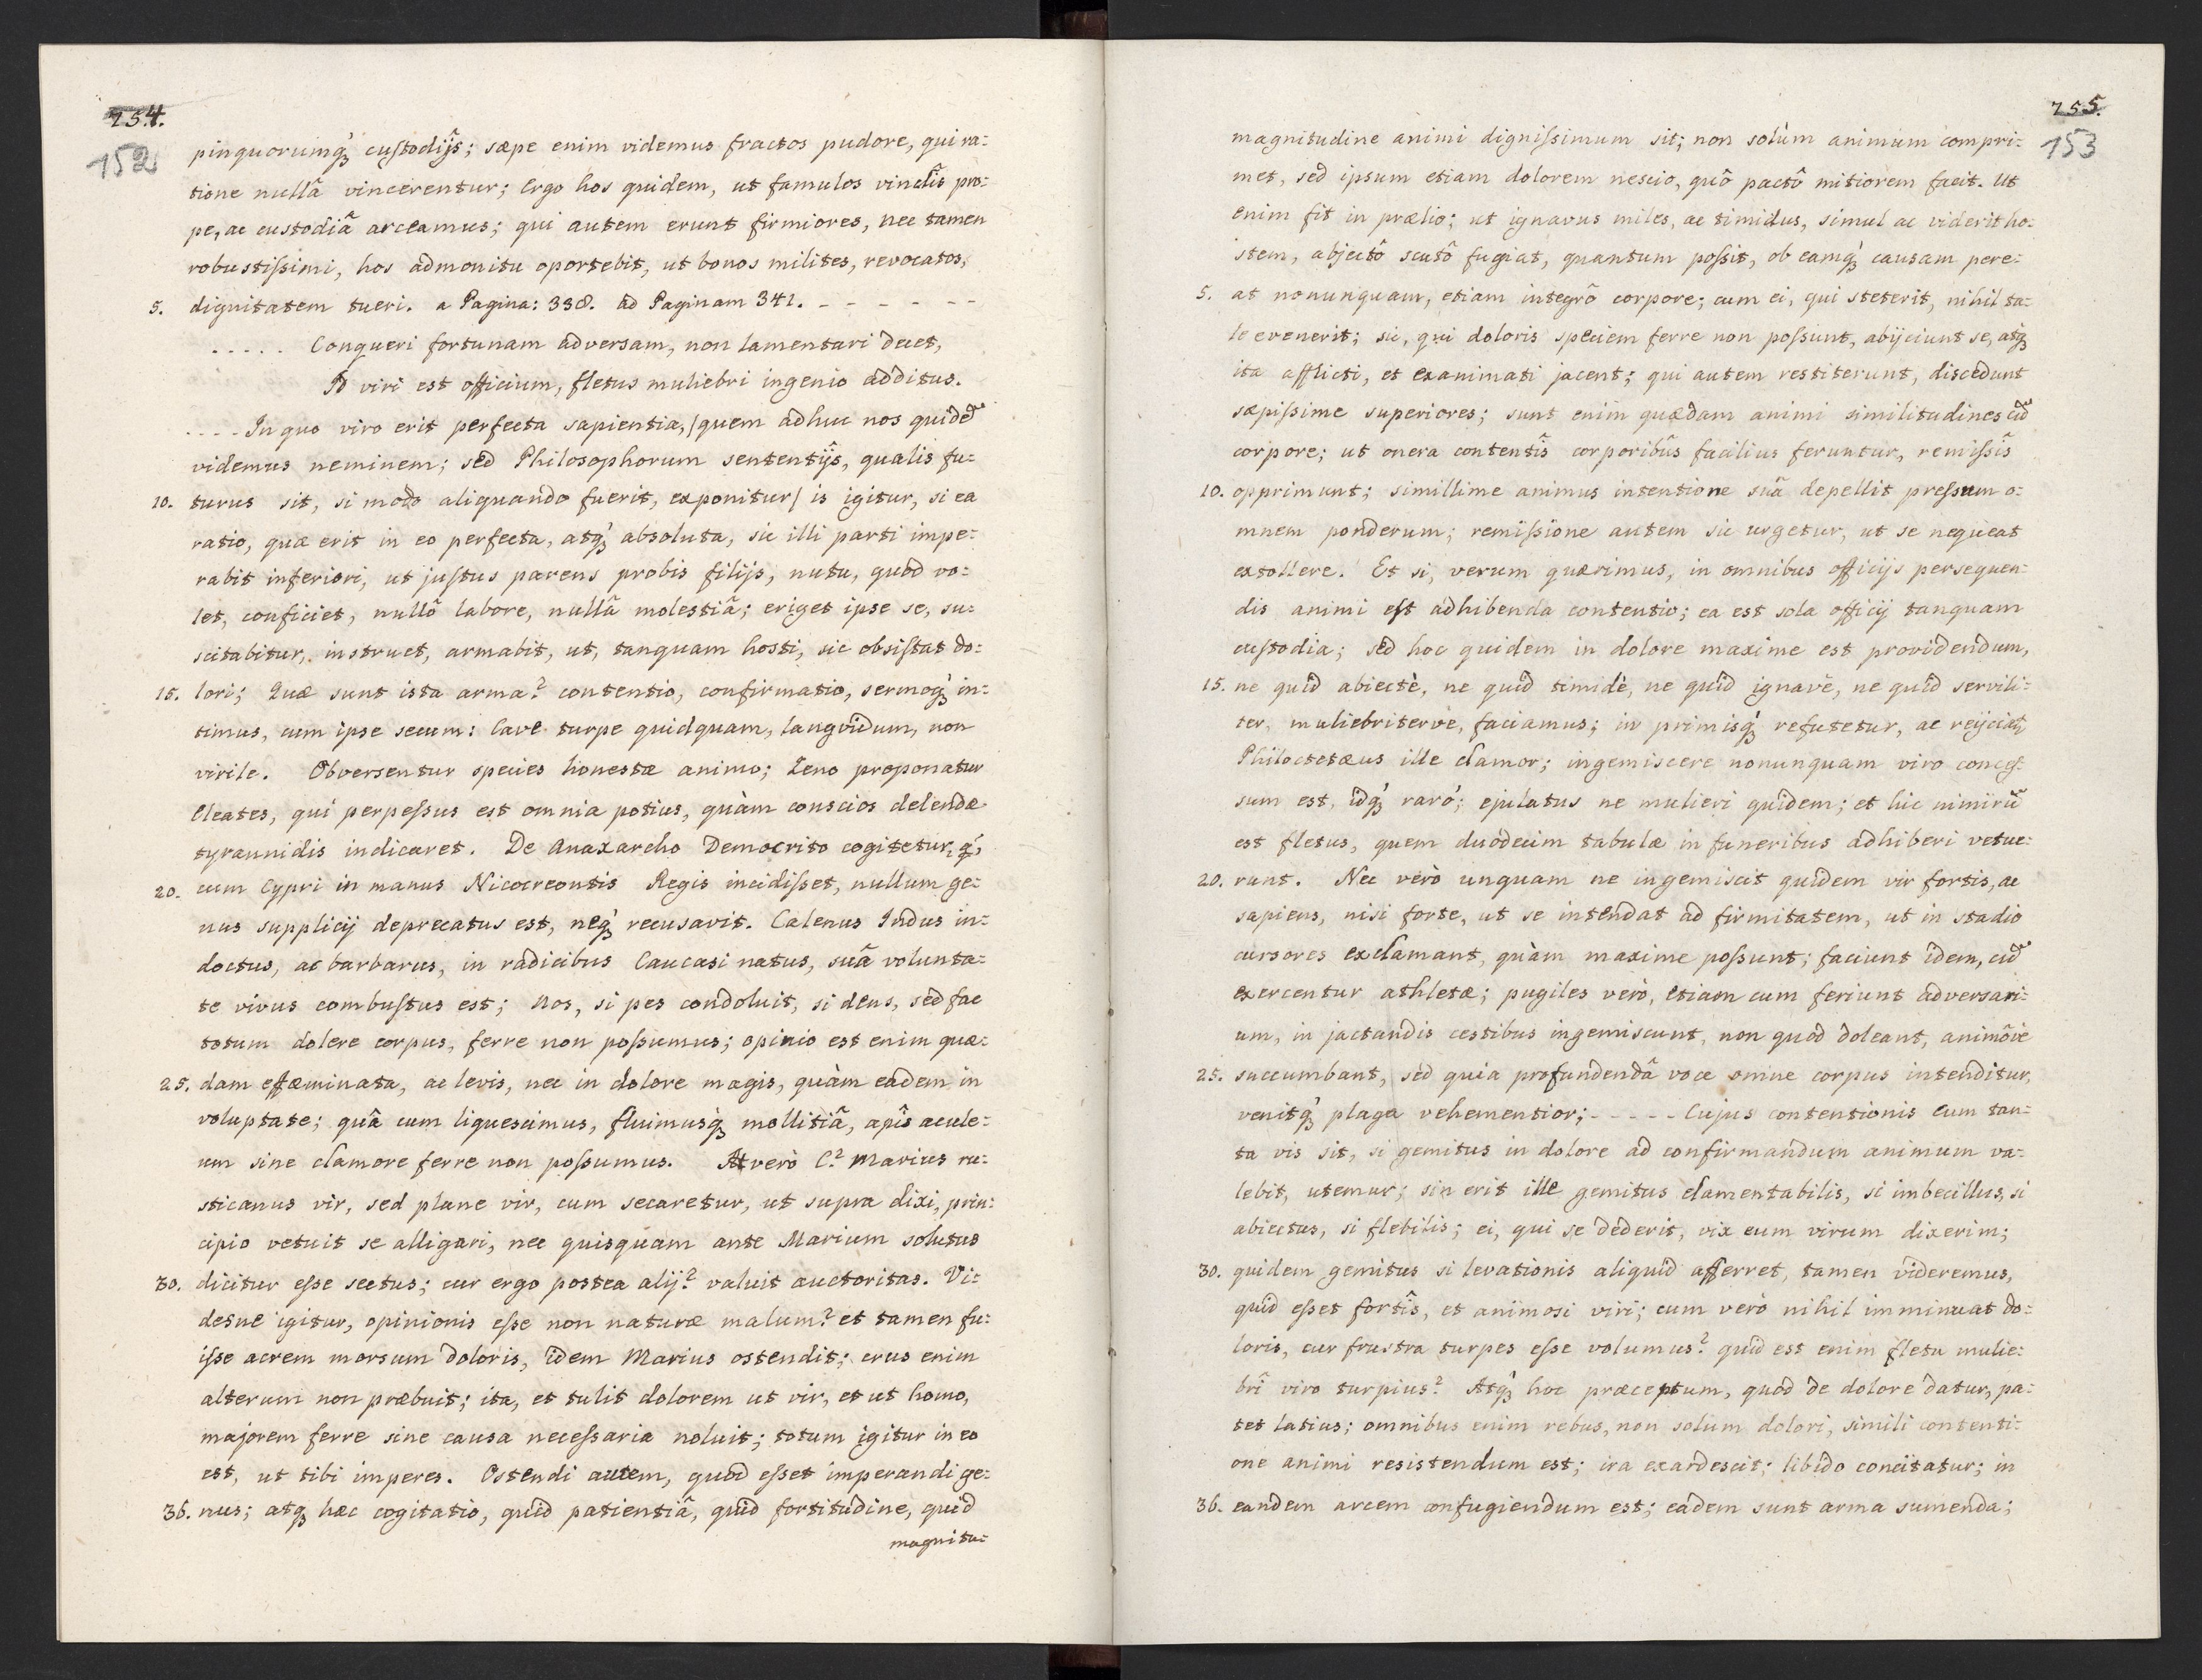 254.
152
pinquorumq́ꝫ cuſtodijs; sæpe enim videmus fractos pudore, qui ra:
tione nullâ vincerentur; ergo hos quidem, ut famulos vinclîs pro:
pe, ac custodiâ arceamus; qui autem erunt firmiores, nec tamen
robustiſsimi, hos admonitu oportebit, ut bonos milites, revocatos,
5. dignitatem tueri. a Pagina: 338. ad Paginam 341. - - - - - -
. . . . . Conqueri fortunam adversam, non lamentari decet,
Id viri est officium, fletus muliebri ingenio additus.
. . . . In quo viro erit perfecta sapientia, /quem adhuc nos quidẽ
videmus neminem; sed Philosophorum sententijs, qualis fu:
10. turus sit, si modo aliquando fuerit, exponitur/ is igitur, si ea
ratio, quæ erit in eo perfecta, atq́ꝫ absoluta, sic illi parti impe:
rabit inferiori, ut juſtus parens probis filijs, nutu, quod vo:
let, conficiet, nullô labore, nullâ molestiâ; eriget ipse se, su:
scitabitur, instruet, armabit, ut, tanquam hosti, sic obsiſtat do:
15. lori; Quæ sunt ista arma? contentio, confirmatio, sermoq́ꝫ in:
timus, cum ipse secum: Cave turpe quidquam, langvidum, non
virile. Obversentur species honestæ animo; Zeno proponatur
Eleates, qui perpeſsus est omnia potius, quàm conscios delendæ
tyrannidis indicaret. De Anaxarcho Democrito cogitetur, q́;
20. cum Cypri in manus Nicocreontis Regis incidiſset, nullum ge:
nus supplicij deprecatus est, neq́ꝫ recusavit. Calenus Indus in:
doctus, ac barbarus, in radicibus Caucasi natus, suâ volunta:
te vivus combuſtus est; Nos, si pes condoluit, si dens, sed fac
totum dolere corpus, ferre non poſsumus; opinio est enim quæ:
25. dam effæminata, ac levis, nec in dolore magis, quàm eadem in
voluptate; quâ cum liquescimus, fluimusq́ꝫ mollitiâ, apîs acule:
um sine clamore ferre non poſsumus. At verò C.? Marius ru:
sticanus vir, sed plane vir, cum secaretur, ut supra dixi, prin:
cipio vetuit se alligari, nec quisquam ante Marium solutus
30. dicitur eſse sectus; cur ergo postea alij? valuit auctoritas. Vi:
desne igitur, opinionis eſse non naturæ malum? et tamen fu:
iſse acrem morsum doloris, idem Marius ostendit; crus enim
alterum non præbuit; ita, et tulit dolorem ut vir, et ut homo,
majorem ferre sine causa neceſsaria noluit; totum igitur in eo
est, ut tibi imperes. Ostendi autem, quod eſset imperandi ge:
36. nus; atqꝫ hæc cogitatio, quid patientiâ, quid fortitudine, quid
magnitu:
255.
153
magnitudine animi digniſsimum sit; non solùm animum compri:
met, sed ipsum etiam dolorem nescio, quô pactô mitiorem facit. Ut
enim fit in prælio; ut ignavus miles, ac timidus, simul ac viderit ho:
stem, abjectô scutô fugiat, quantum poſsit, ob eamq́ꝫ causam pere:
5. at nonunquam, etiam integrô corpore; cum ei, qui steterit, nihil ta:
le evenerit; sic, qui doloris speciem ferre non poſsunt, abijciunt se, atqꝫ
ita afflicti, et exanimati jacent; qui autem restiterunt, discedunt
sæpiſsime superiores; sunt enim quædam animi similitudines cũ
corpore; ut onera contentîs corporibûs facilius feruntur, remiſsîs
10. opprimunt; simillime animus intentione suâ depellit preſsum o:
mnem ponderum; remiſsione autem sic urgetur, ut se nequeat
extollere. Et si, verum quærimus, in omnibus officijs persequen:
dis animi eſt adhibenda contentio; ea est sola officij tanquam
cuſtodia; sed hoc quidem in dolore maxime est providendum,
15. ne quid abiectè, ne quid timidè, ne quid ignavè, ne quid servili:
ter, muliebriterve, faciamus; in primisq́ꝫ refutetur, ac reijciatꝫ
Philoctetæus ille clamor; ingemiscere nonunquam viro conceſ:
sum est, idq́ꝫ rarò; ejulatus ne mulieri quidem; et hic nimirũ
est fletus, quem duodecim tabulæ in funeribus adhiberi vetue:
20. runt. Nec verò unquam ne ingemiscit quidem vir fortis, ac
sapiens, nisi forte, ut se intendat ad firmitatem, ut in stadio
cursores exclamant, quàm maxime poſsunt; faciunt idem, cũ
exercentur athletæ; pugiles verò, etiam cum feriunt adversari:
um, in jactandis cestibus ingemiscunt, non quod doleant, animôve
25. succumbant, sed quia profundendâ voce omne corpus intenditur,
venitq́ꝫ plaga vehementior; - - - - - Cujus contentionis cum tan:
ta vis sit, si gemitus in dolore ad confirmandum animum va:
lebit, utemur; sin erit ille gemitus elamentabilis, si imbecillus, si
abiectus, si flebilis; ei, qui se dederit, vix eum virum dixerim;
30. quidem gemitus si levationis aliquid afferret, tamen videremus,
quid eſset fortîs, et animosi viri; cum verò nihil imminuat do:
loris, cur frustra turpes eſse volumus? quid est enim fletu mulie:
brî viro turpius? Atq́ꝫ hoc præceptum, quod de dolore datur, pa:
tet latius; omnibus enim rebus, non solum dolori, simili contenti:
one animi resistendum est; ira exardescit; libido concitatur; in
36. eandem arcem confugiendum est; eadem sunt arma sumenda;